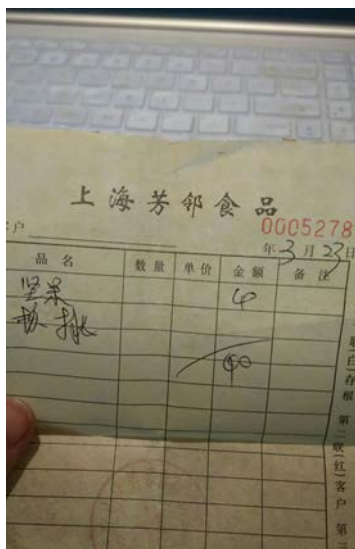 上海芳邻食品
0005278
客户
年3月23日
品名 数量 单价 金额 备注
坚果 40
核桃
40
联(白)存根 第二联(红)客户 第